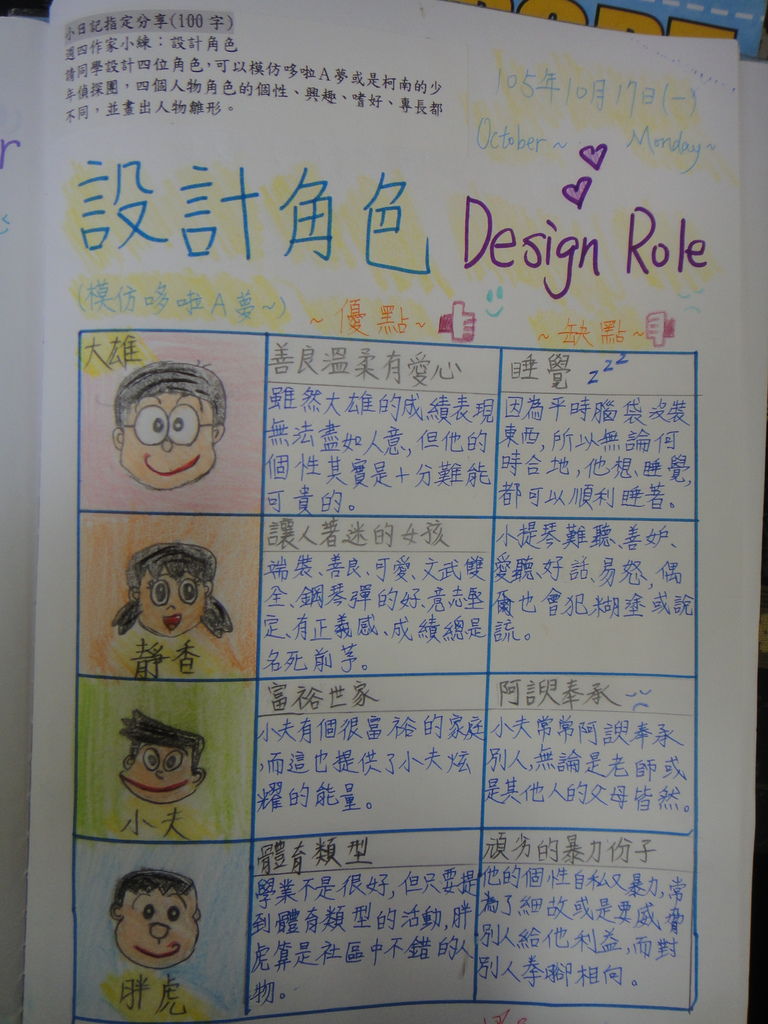 小日記指定分享(100字)
週四作家小練：設計角色
請同學設計四位角色，可以模仿哆啦A夢或是柯南的少
年偵探團，四個人物角色的個性、興趣、嗜好、專長都
不同，並畫出人物雛形。
105年10月17日(一)
October~ Monday~
設計角色 Design Role
(模仿哆啦A夢~)
~優點~
~缺點~
大雄
善良溫柔有愛心
雖然大雄的成績表現
無法盡如人意，但他的
個性其實是十分難能
可貴的。
睡覺 zzz
因為平時腦袋沒裝
東西，所以無論何
時合地，他想睡覺，
都可以順利睡著。
靜香
讓人著迷的女孩
端裝、善良、可愛、文武雙
全、鋼琴彈的好、意志堅
定、有正義感、成績總是
名死前茅。
小提琴難聽、善妒、
愛聽好話、易怒，偶
爾也會犯糊塗或說
謊。
小夫
富裕世家
小夫有個很富裕的家庭
，而這也提供了小夫炫
耀的能量。
阿諛奉承
小夫常常阿諛奉承
別人，無論是老師或
是其他人的父母皆然。
胖虎
體育類型
學業不是很好，但只要提
到體育類型的活動，胖
虎算是社區中不錯的人
物。
頑劣的暴力份子
他的個性自私又暴力，常
為了細故或是要威脅
別人給他利益，而對
別人拳腳相向。